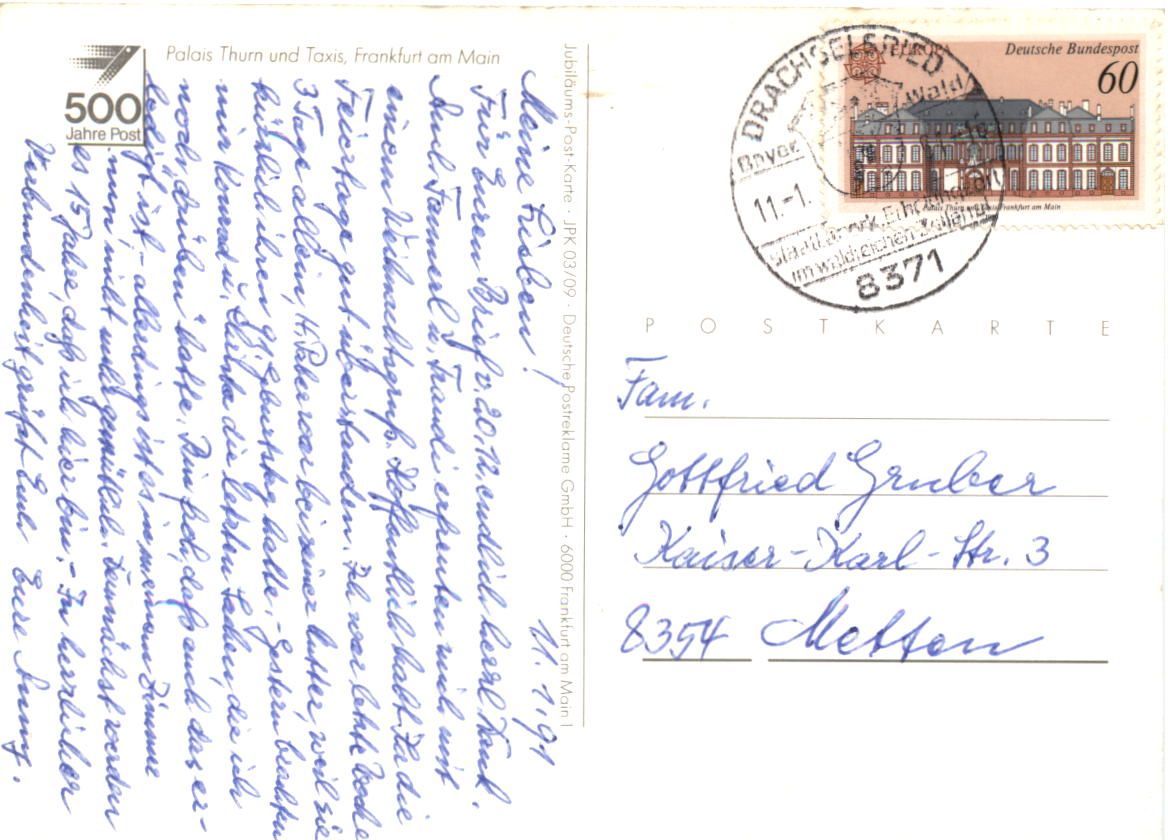 500
Jahre Post
Palais Thurn und Taxis, Frankfurt am Main
Jubiläums-Post-Karte · JPK 03/09 · Deutsche Postreklame GmbH · 6000 Frankfurt am Main 1
11.1.91
Meine Lieben!
Für Euren Brief v. 20.12. endlich herzl. Dank.
Auch Fannerl u. Traudi erfreuten mich mit
einem Weihnachtsgruß. Hoffentlich habt Ihr die
Feiertage gut überstanden. Ich war letzte Woche
3 Tage allein, H. Pater war bei seiner Mutter, weil sie
kürzlich ihren Geburtstag hatte. - Gestern brachten
mir Konrad u. Christa die letzten Sachen, die ich
noch drüben hatte. Bin froh, daß auch das er-
ledigt ist - allerdings ist es in meinem Zimmer
nun nicht mehr gemütlich. Demnächst werden
es 15 Jahre, daß ich hier bin. - In herzlicher
Verbundenheit grüßt Euch Eure Anny.
DRACHSELSRIED
Bayer. Wald
11.-1.
Staatl. anerk. Erholungsort
im waldreichen Zellertal
8371
EUROPA
Deutsche Bundespost
60
Palais Thurn und Taxis Frankfurt am Main
POSTKARTE
Fam.
Gottfried Gruber
Kaiser-Karl-Str. 3
8354 Metten